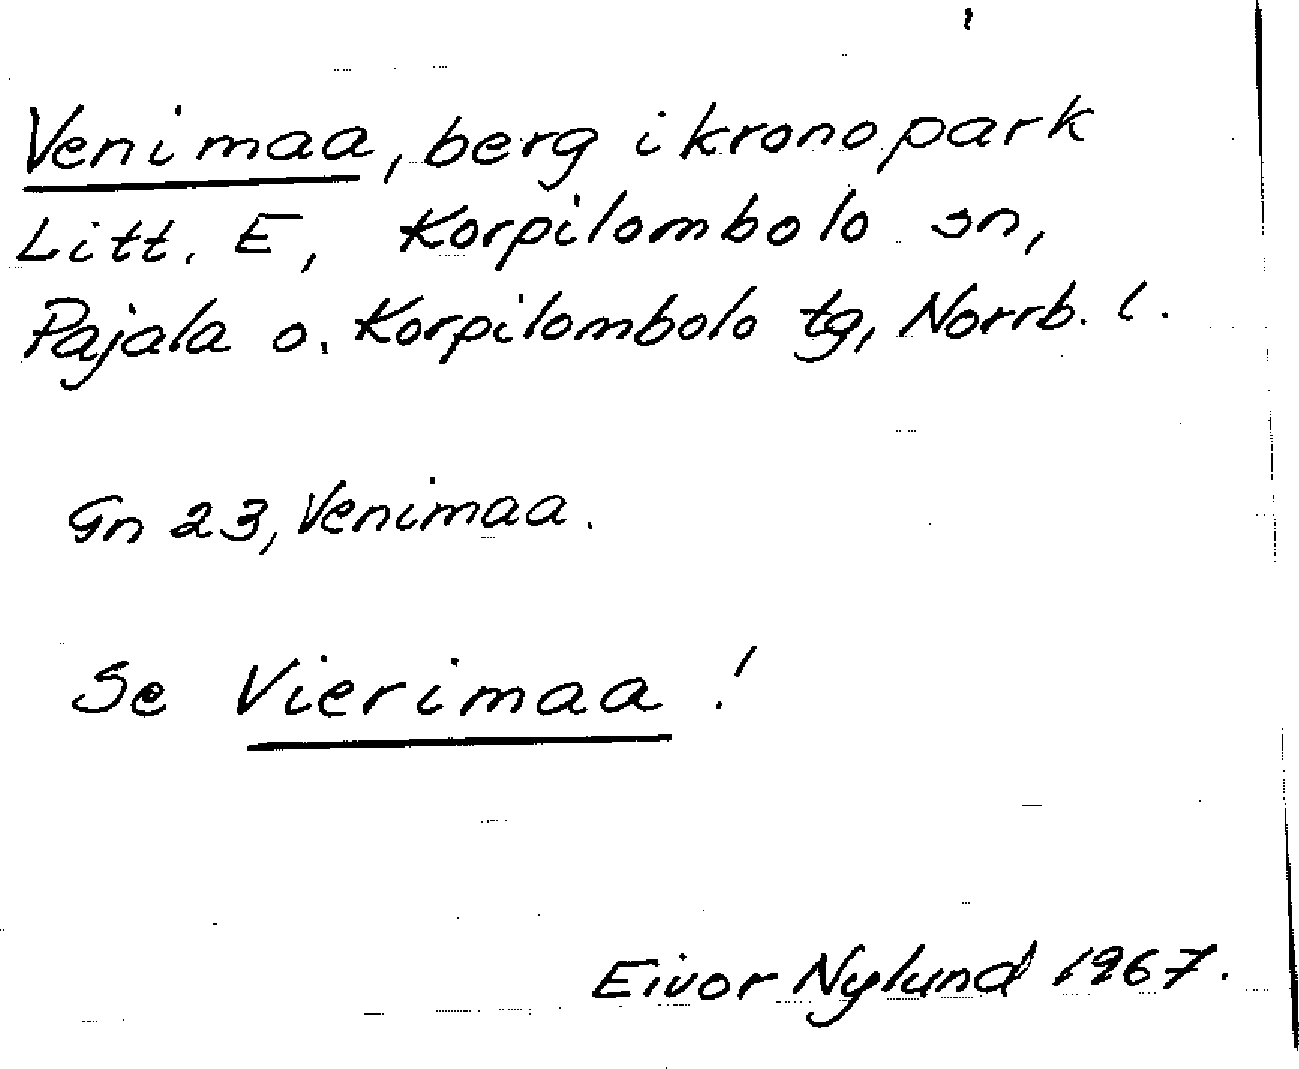 Venimaa, berg i kronopark
Litt. E, Korpilombolo sn,
Pajala o. Korpilombolo tg, Norrb. l.
Gn 23, Venimaa.
Se Vierimaa!
Eivor Nylund 1967.